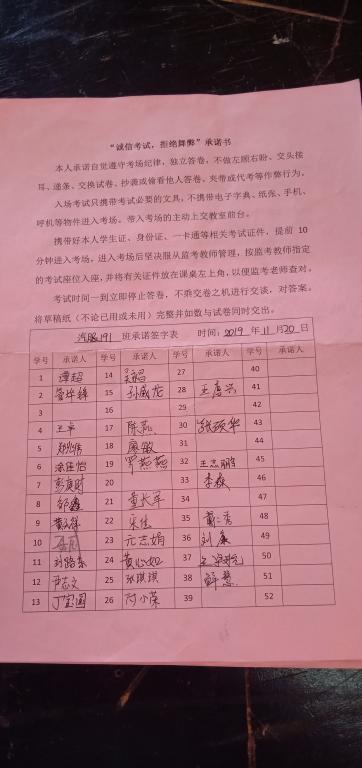 “诚信考试，拒绝舞弊”承诺书
本人承诺自觉遵守考场纪律，独立答卷，不做左顾右盼、交头接
耳、递条、交换试卷、抄袭或偷看他人答卷、夹带或代考等作弊行为，
入场考试只携带考试必要的文具，不携带电子字典、纸张、手机、
呼机等物件进入考场。带入考场的主动上交教室前台。
携带好本人学生证、身份证、一卡通等相关考试证件，提前 10
分钟进入考场，进入考场后坚决服从监考教师管理，按监考教师指定
的考试座位入座，并将有关证件放在课桌左上角，以便监考老师查对。
考试时间一到立即停止答卷，不乘交卷之机进行交谈，对答案。
将草稿纸（不论已用或未用）完整并如数与试卷同时交出。
191 班承诺签字表 时间：2019 年 11 月 20 日
学号 承诺人 学号 承诺人 学号 承诺人 学号 承诺人
1 谭超 14 27 40
2 15 孙威龙 28 41
3 16 29 42
4 17 30 43
5 18 廖敏 31 44
6 19 罗燕燕 32 王志鹏 45
7 20 33 李森 46
8 邹鑫 21 董长军 34 47
9 22 宋佳 35 戴仁秀 48
10 23 亢志娟 36 刘廉 49
11 24 黄心如 37 50
12 尹志文 25 张琪琪 38 鲜慧 51
13 丁宝国 26 付小荣 39 52